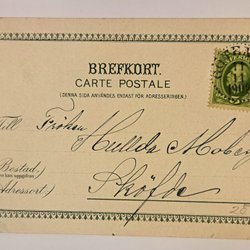 BREFKORT.
CARTE POSTALE
(DENNA SIDA ANVÄNDES ENDAST FÖR ADRESSERINGEN.)
Till Fröken
Hullda Moberg
(Bostad,
Sköfde
(Adressort.)